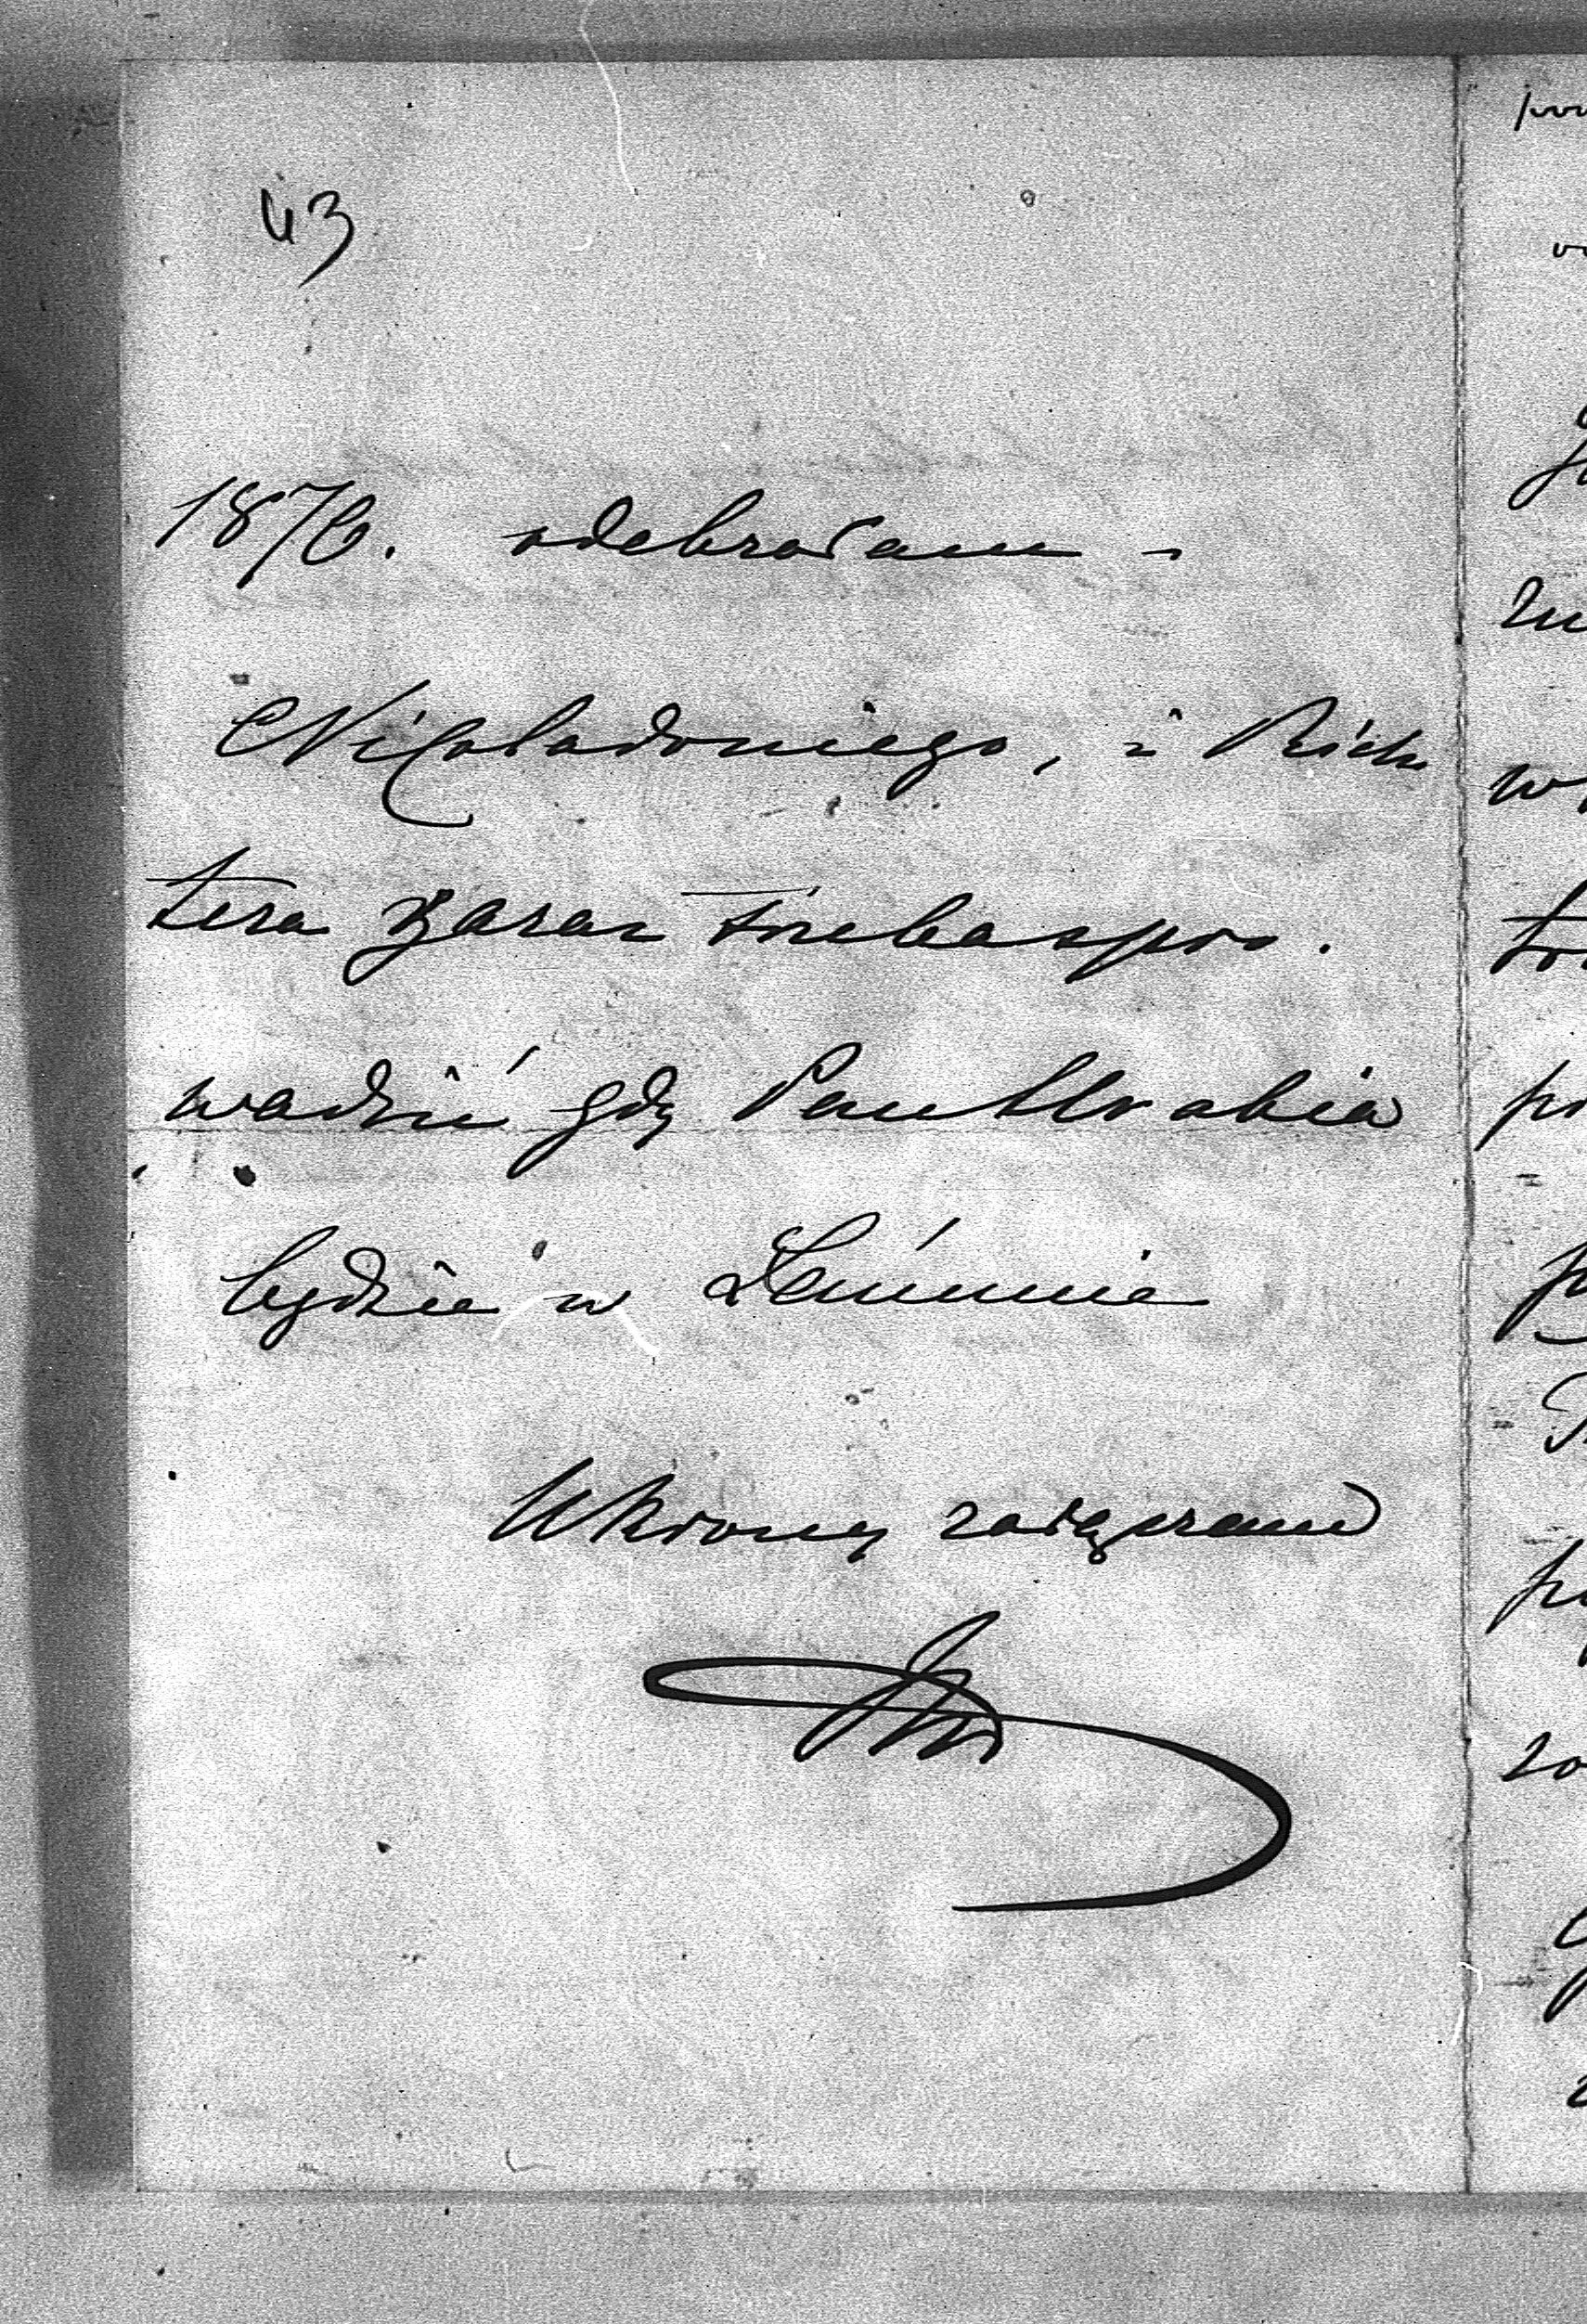 43
1876. odebrałam -
Nigoladoniego, i Rich
tera zaraz trzeba spro.
wadzić gdy Pan Hrabia
będzie w Łańcucie
Ukłony załączam